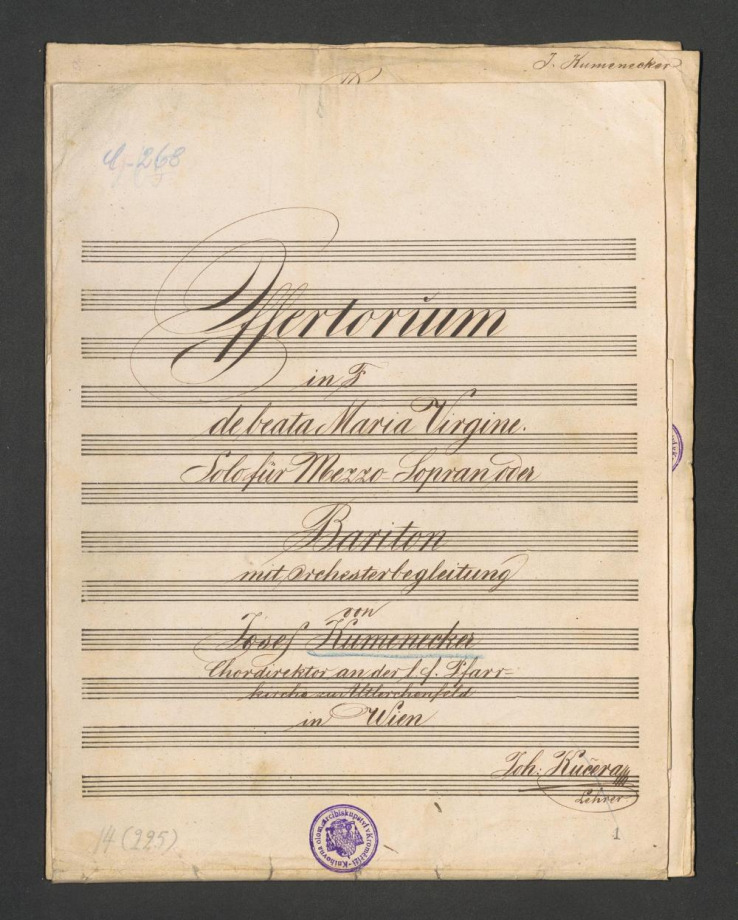 J. Kumenecker
A-268
Offertorium
in F
de beata Maria Virgine.
Solo für Mezzo-Sopran oder
Bariton
mit Orchesterbegleitung
von
Josef Kumenecker
Chordirektor an der l. f. Pfarr=
kirche zu Altlerchenfeld
in Wien
Joh: Kučera
Lehrer
14 (225)
1
Knihovna olom. arcibiskupství v Kroměříži